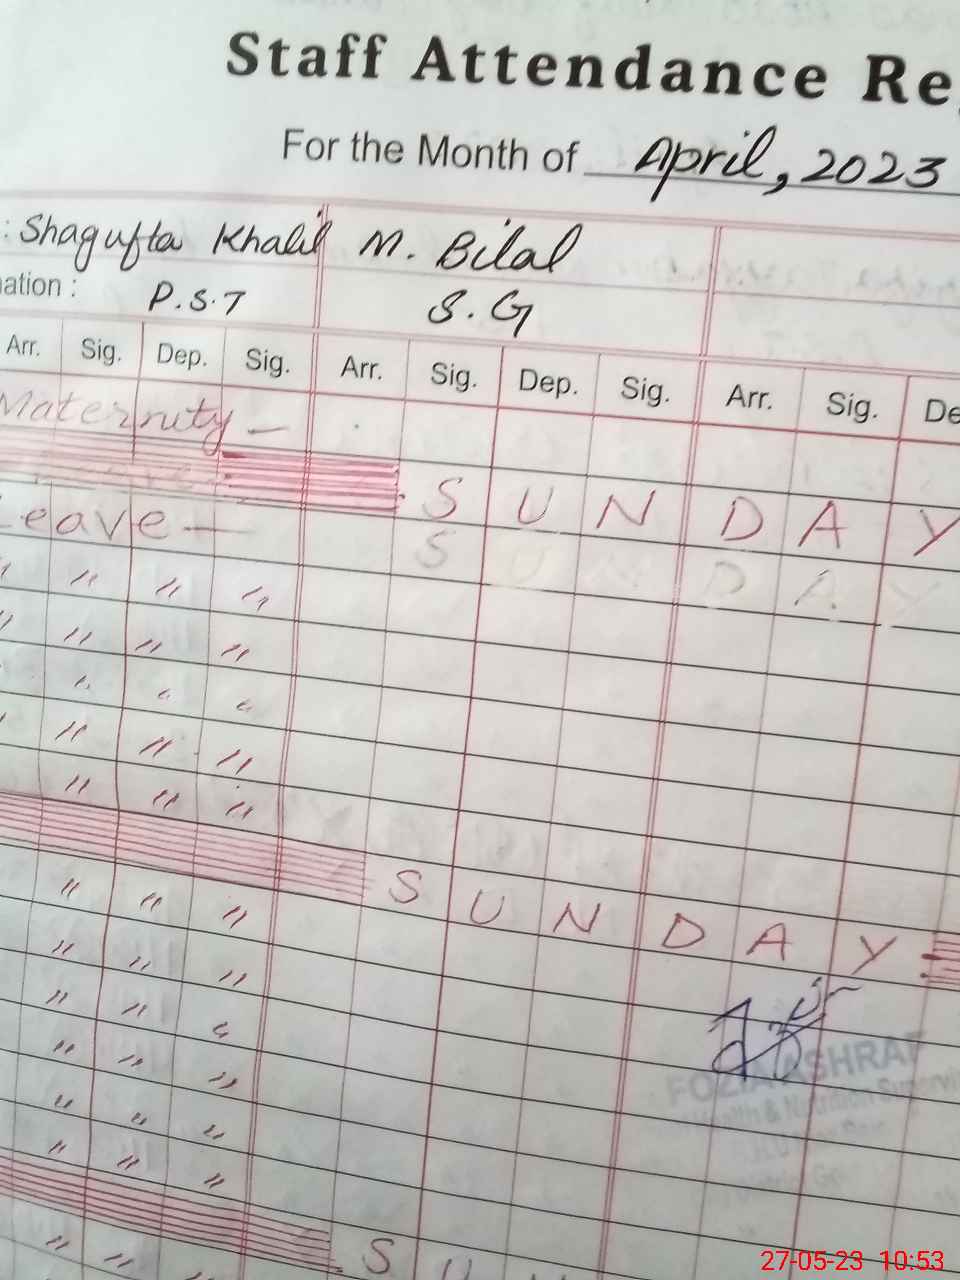 Staff Attendance Re
For the Month of April, 2023
: Shagufta Khalil M. Bilal
ation : P.S.T S.G
Arr. Sig. Dep. Sig. Arr. Sig. Dep. Sig. Arr. Sig. De
Maternity —
S U N D A Y
Leave —
S U N D A Y
" " " "
" " " "
" " "
" " " "
" " "
S U N D A Y
" " "
" " "
" " "
FOZIA ASHRAF
" " "
Health & Nutrition Supervi
" " "
" " "
S U N
" "
27-05-23 10:53